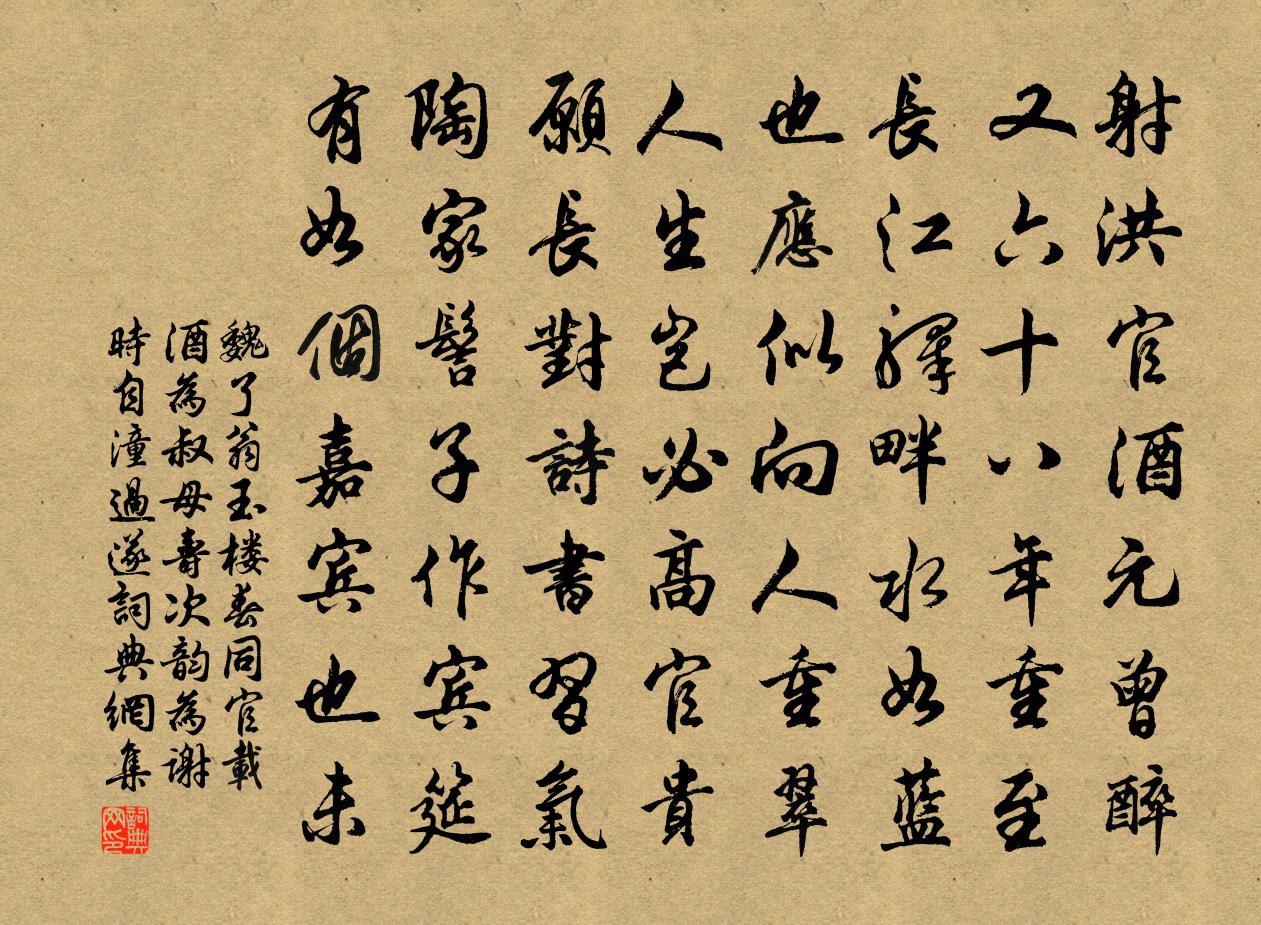 射洪官酒元曾醉
又六十八年重至
長江驛畔水如藍
也應似向人重翠
人生豈必高官貴
願長對詩書習氣
陶家髻子作賓筵
有如個嘉賓也未
魏了翁玉楼春同官載
酒為叔母壽次韵為謝
時自潼過遂詞典網集
詞典网印